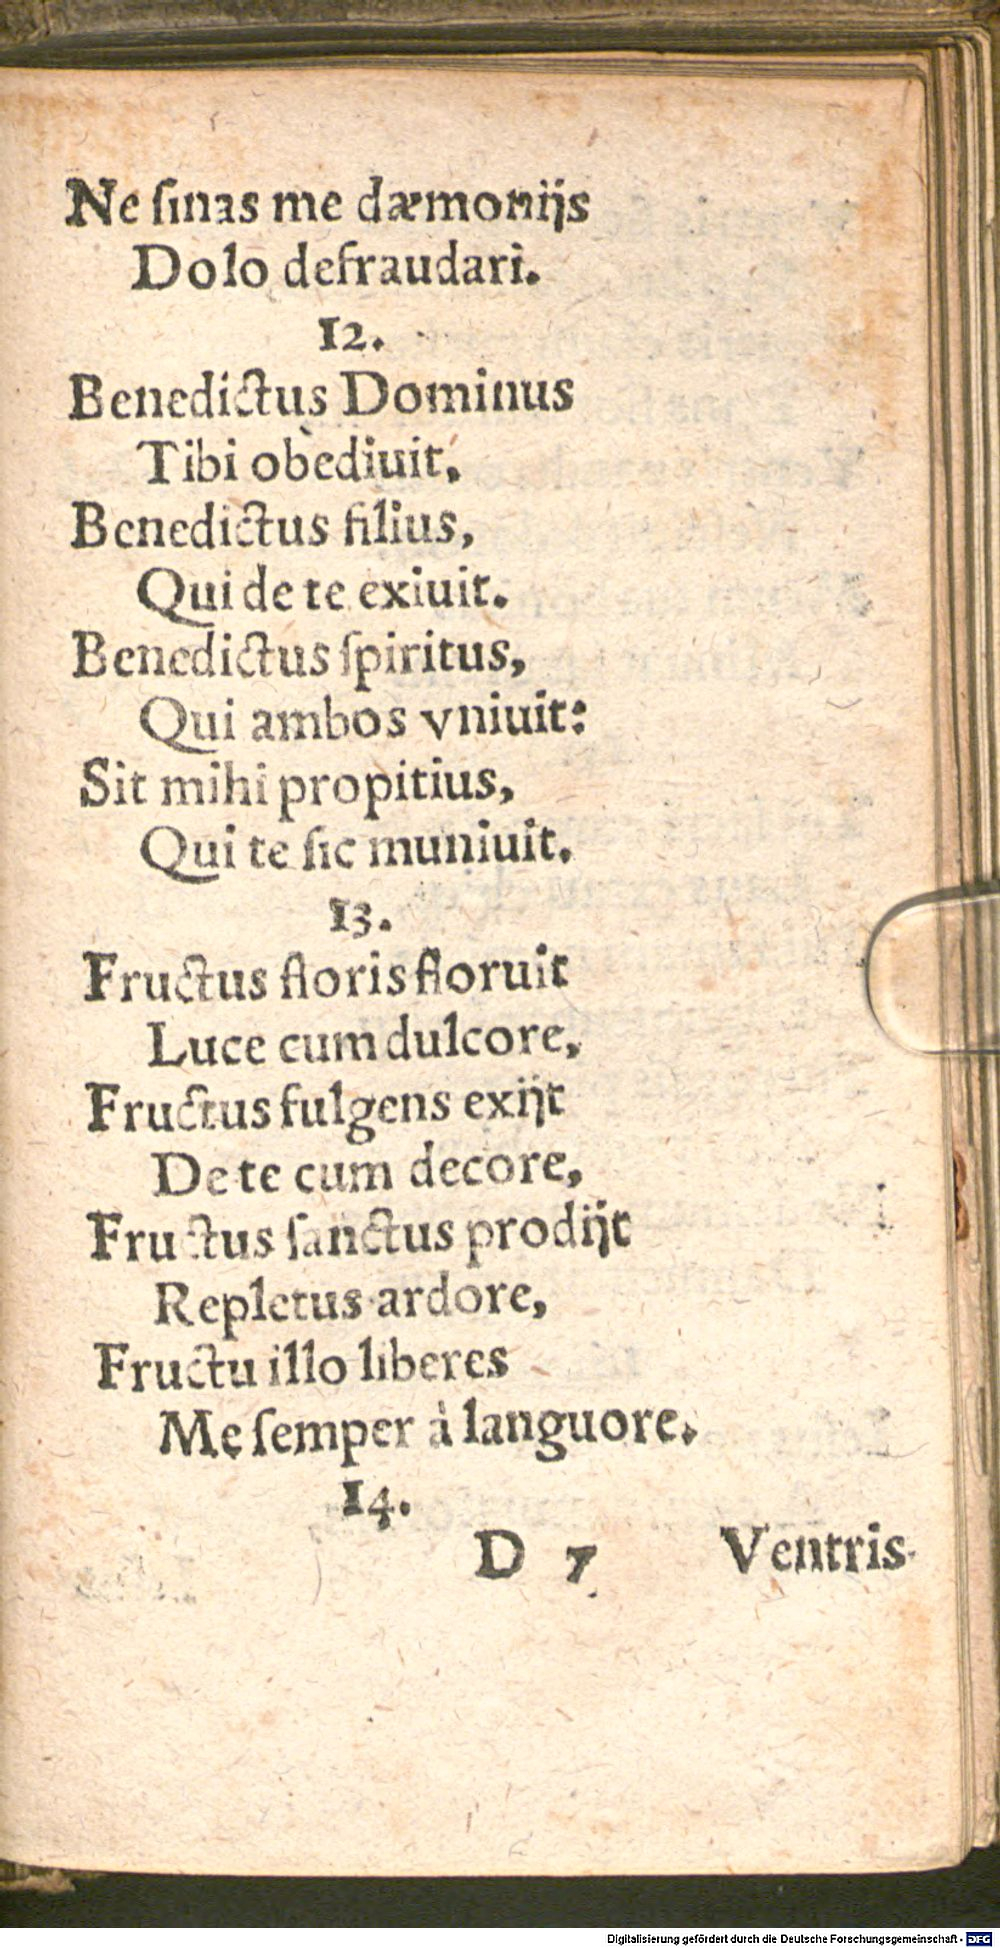 Ne ſinas me dæmonijs
Dolo defraudari.
12.
Benedictus Dominus
Tibi obediuit,
Benedictus filius,
Qui de te exiuit.
Benedictus ſpiritus,
Qui ambos vniuit:
Sit mihi propitius,
Qui te ſic muniuit.
13.
Fructus floris floruit
Luce cum dulcore,
Fructus fulgens exijt
De te cum decore,
Fructus ſanctus prodijt
Repletus ardore,
Fructu illo liberes
Me ſemper à languore.
14.
D 7 Ventris
Digitalisierung gefördert durch die Deutsche Forschungsgemeinschaft - DFG